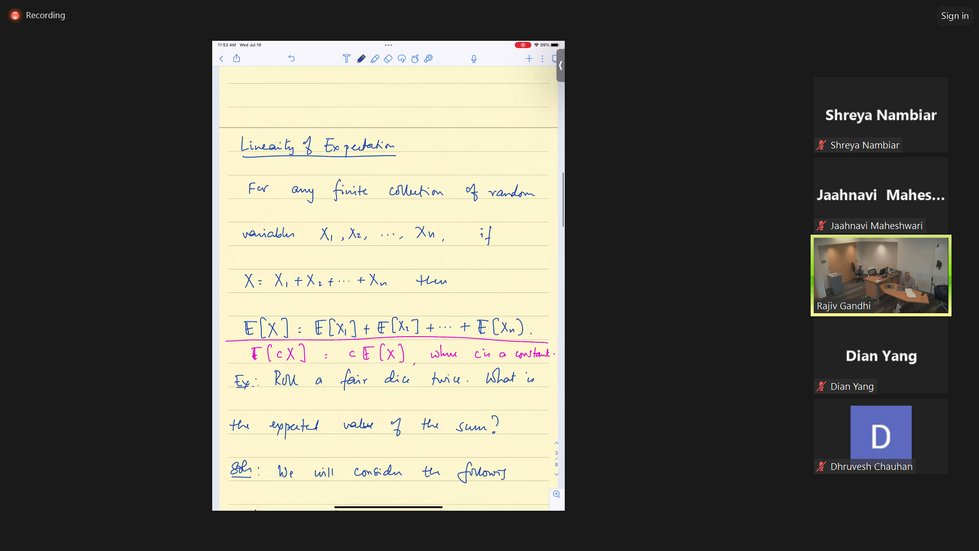 Recording
Sign in
11:53 AM Wed Jul 19
99%
Linearity of Expectation
For any finite collection of random
variables X₁, X₂, ..., Xn, if
X = X₁ + X₂ + ... + Xn then
E[X] = E[X₁] + E[X₂] + ... + E[Xn].
E[cX] = c E[X], where c is a constant.
Ex: Roll a fair dice twice. What is
the expected value of the sum?
Soln: We will consider the following
Shreya Nambiar
Shreya Nambiar
Jaahnavi Mahes...
Jaahnavi Maheshwari
Rajiv Gandhi
Dian Yang
Dian Yang
D
Dhruvesh Chauhan